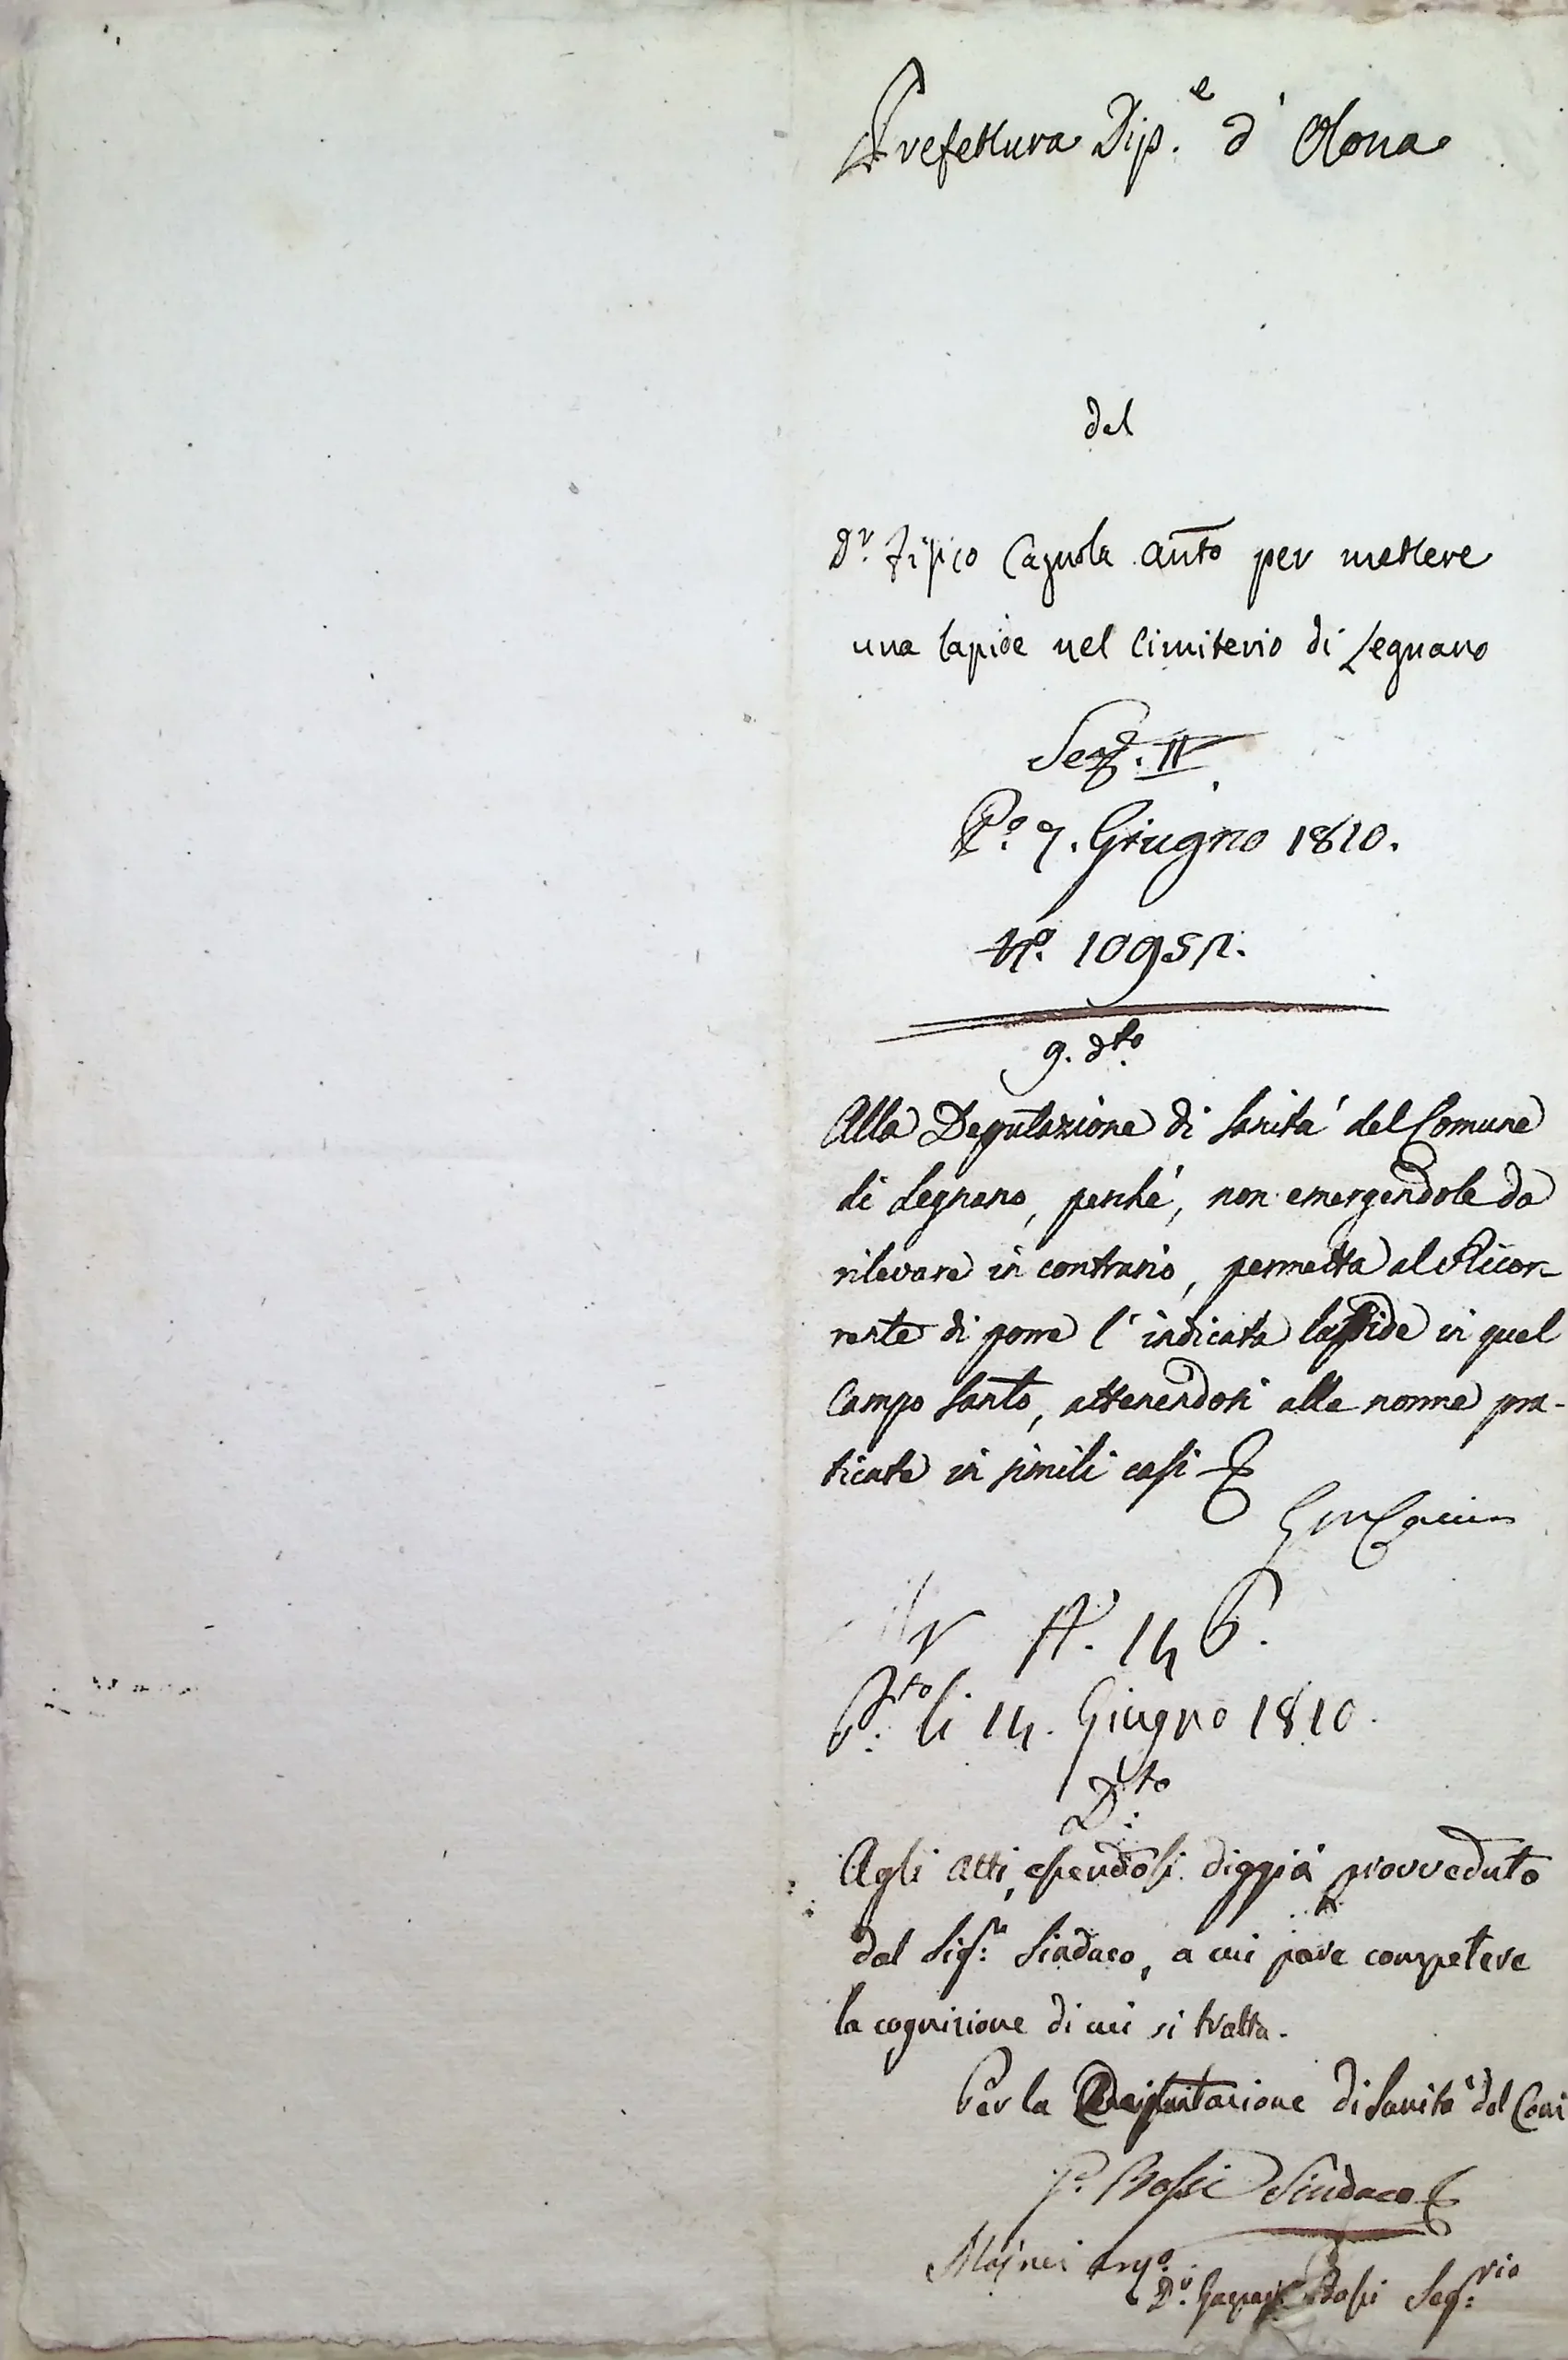 Prefettura Dip.e d' Olona
del
Dr. Fisico Cagnola Anto per mettere
una lapide nel Cimiterio di Legnano
Sez. II
P.o 7. Giugno 1810.
N.o 10952.
9. d.to
Alla Deputazione di Sanità del Comune
di Legnano, perché, non emergendole da
rilevare in contrario, permetta al Ricor-
rente di porre l' indicata lapide in quel
Campo Santo, attenendosi alle norme pra-
ticate in simili casi
N. 146.
P.to li 14. Giugno 1810.
D.to
Agli Atti, essendosi diggià provveduto
dal Sig.r Sindaco, a cui pare competere
la cognizione di cui si tratta.
Per la Deputazione di Sanità del Com
P. Bossi Sindaco
D.r Bossi Seg.rio